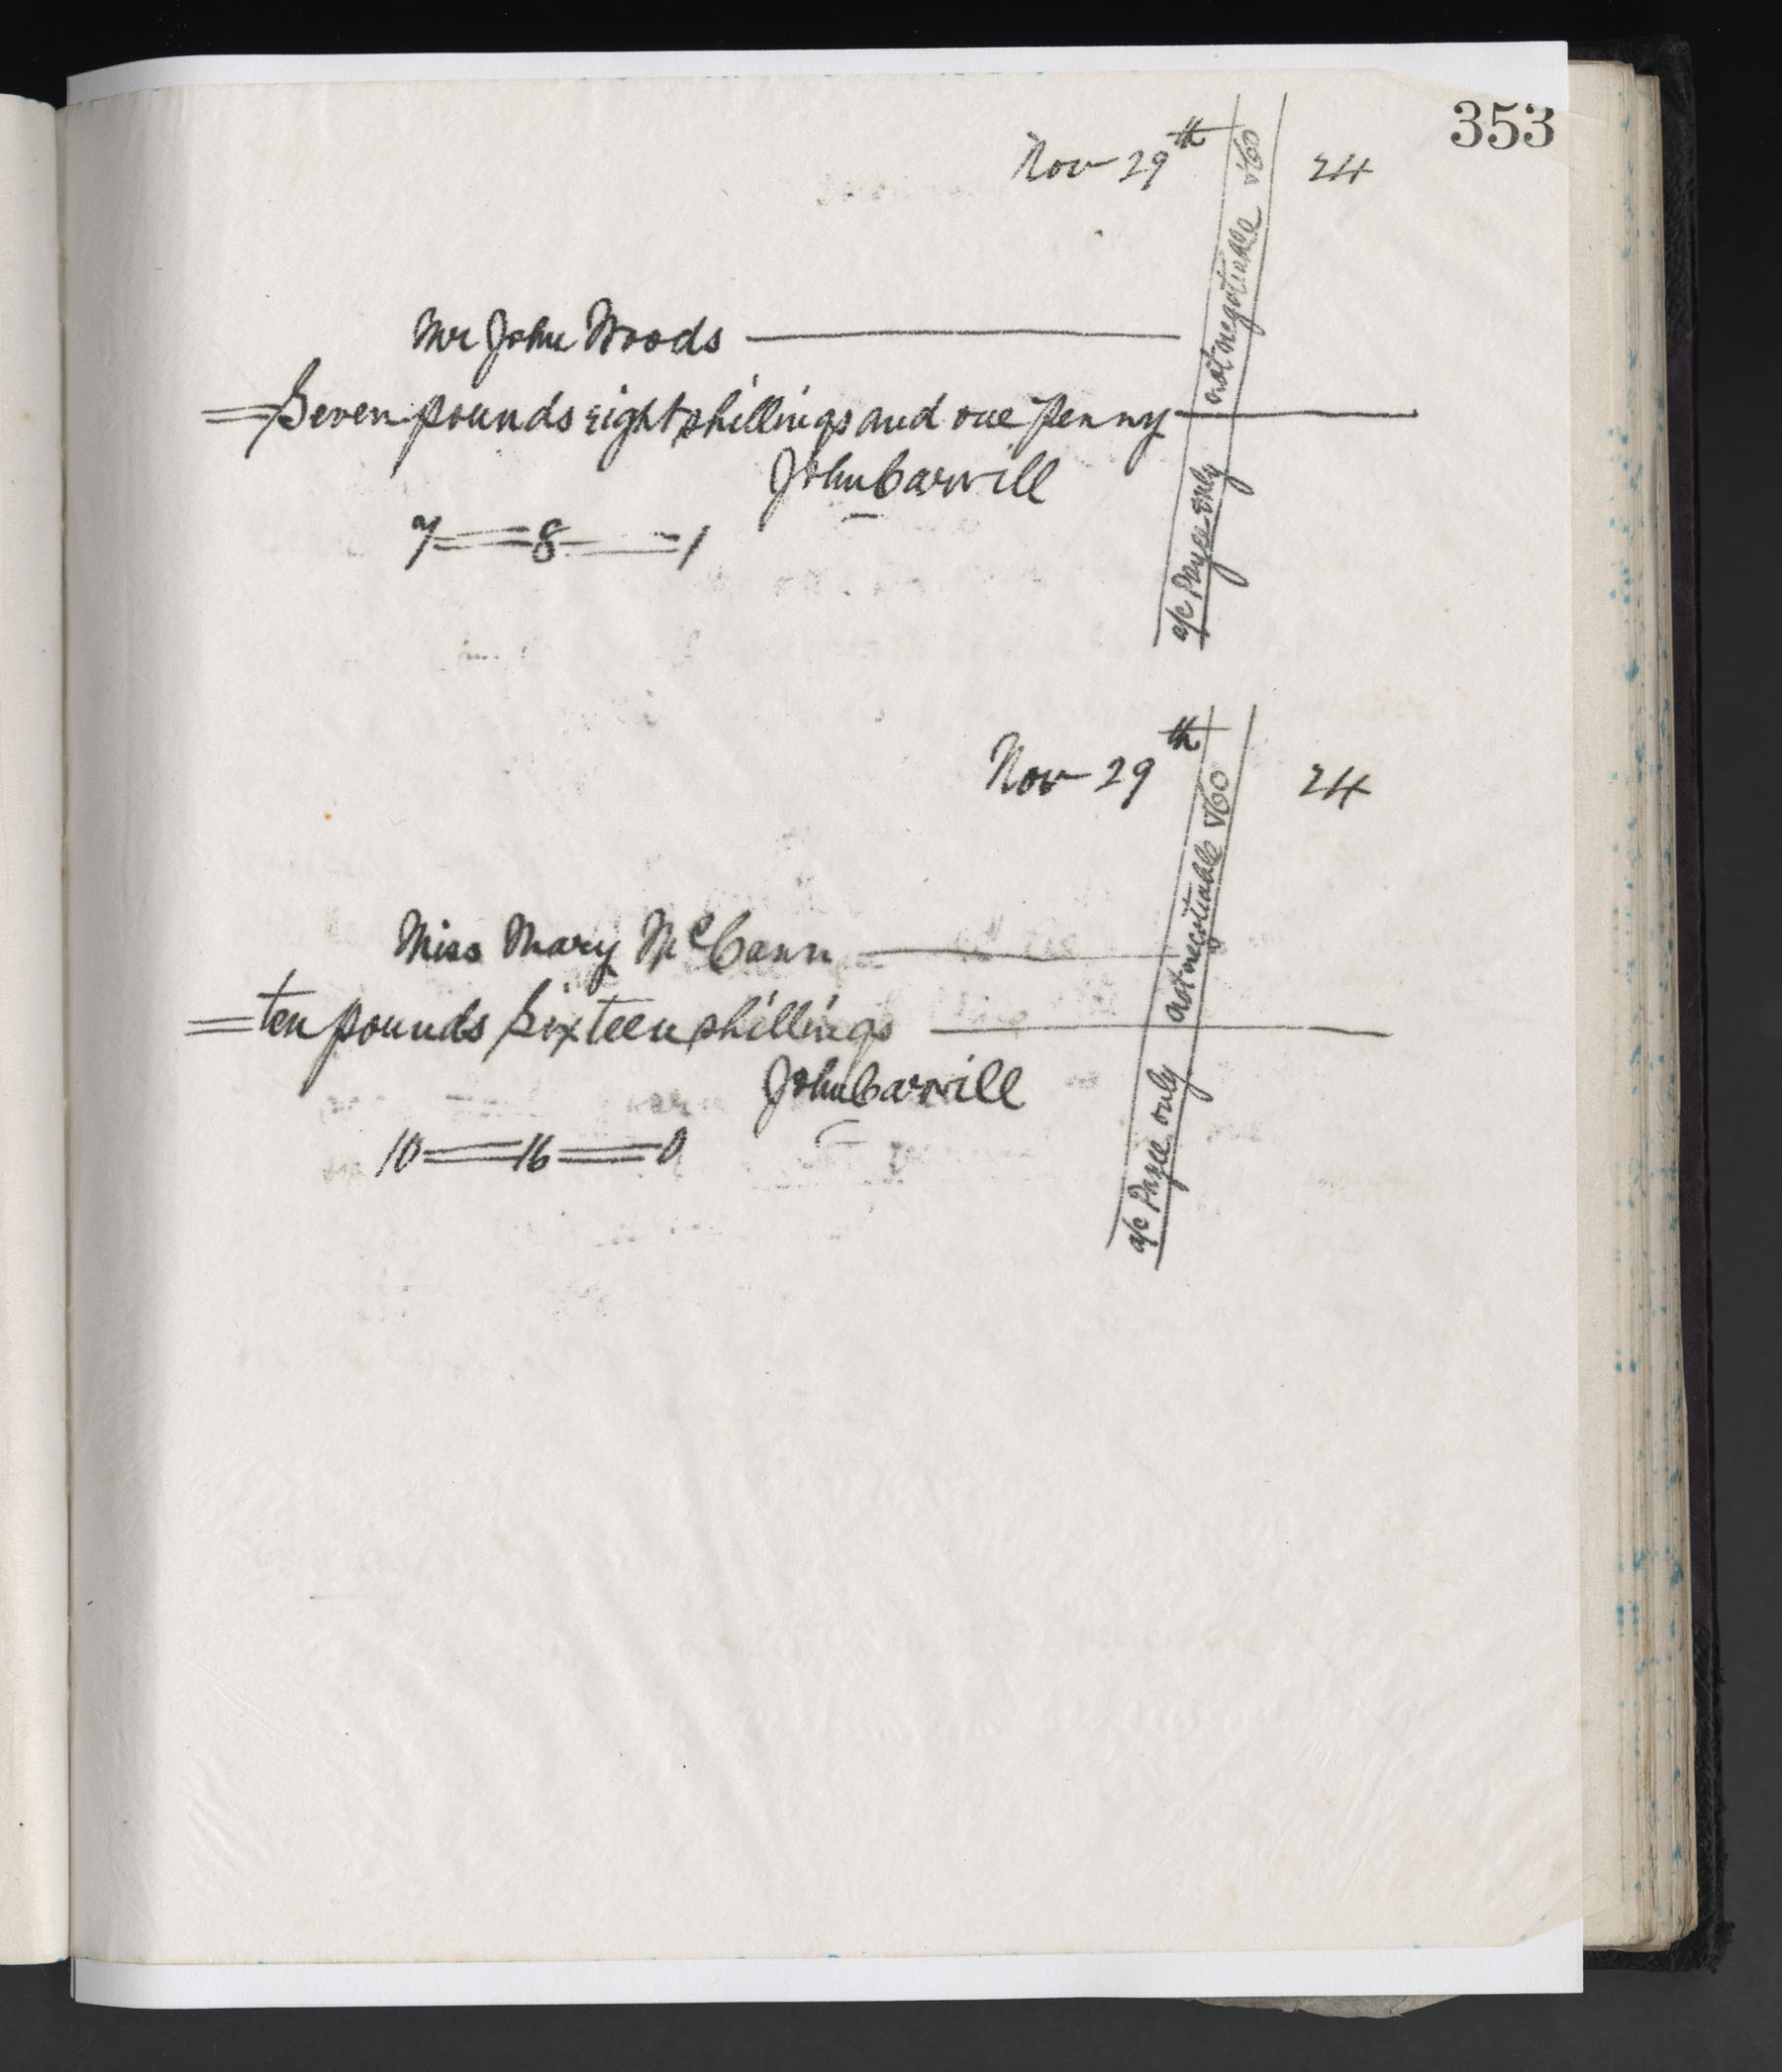 353
Nov 29th 24
Mr John Woods
Seven pounds eight shillings and one penny
John Carvill
7=8=1
a/c Payee only not negotiable
Nov 29th 24
Miss Mary McCann
ten pounds Sixteen shillings
John Carvill
10=16=0
a/c Payee only not negotiable